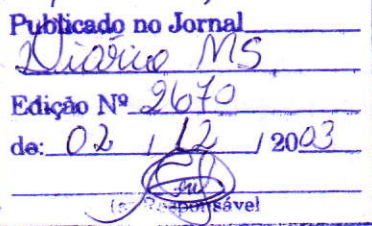 Publicado no Jornal
Diário MS
Edição Nº 2670
de: 02 / 12 / 2003
Responsável